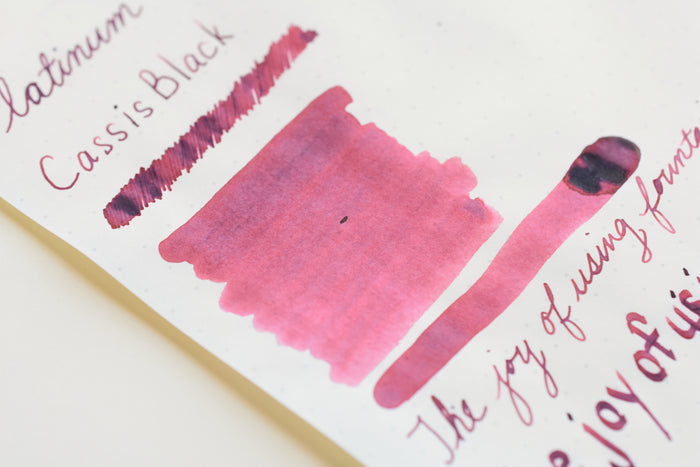 latinum
Cassis Black
The joy of using founta
joy of usi